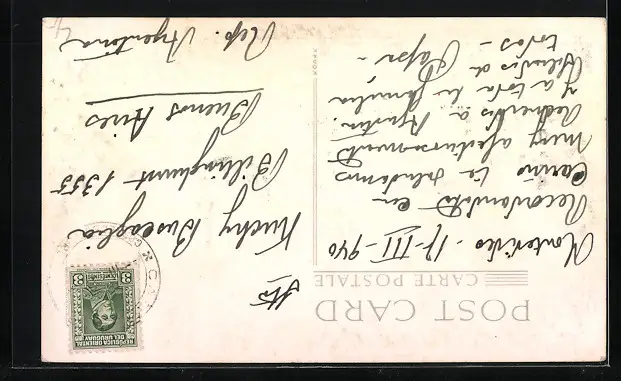 POST CARD
CARTE POSTALE
Montevideo - 17-III-940
Recordandote con
Cariño te saludamos
muy afectuosamente
Recuerdos a Agustin
y a toda la familia
Saludos de Papá -
todos -
Kuchy Buscaglia
Billinghurst 1355
Buenos Aires
Rep. Argentina
REPUBLICA ORIENTAL
DEL URUGUAY
3 3
CENTESIMOS